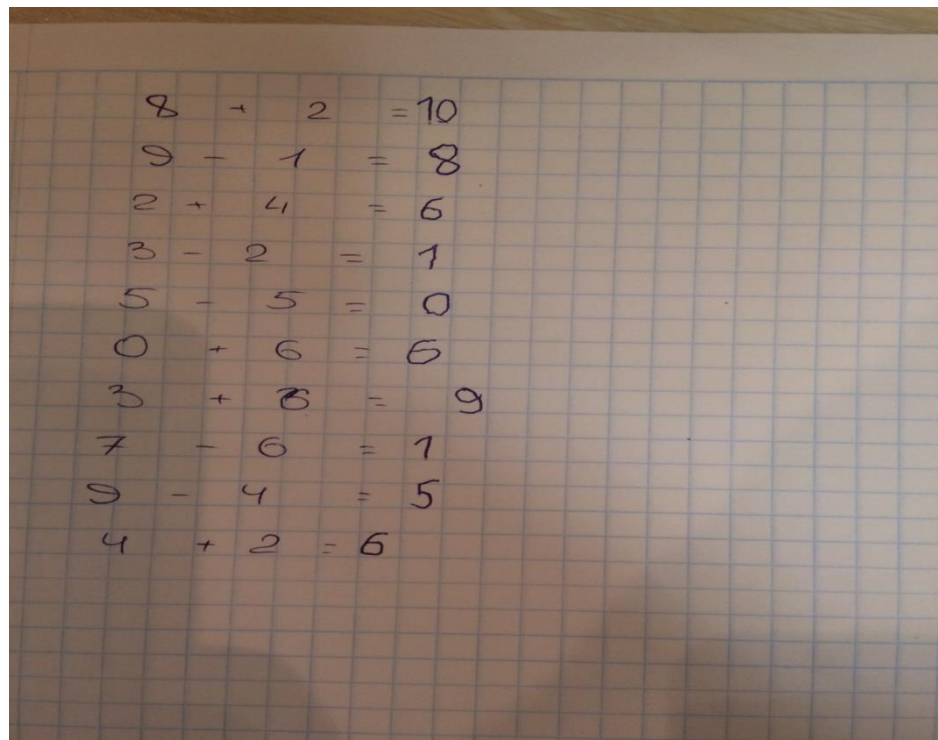 8 + 2 = 10
9 - 1 = 8
2 + 4 = 6
3 - 2 = 1
5 - 5 = 0
0 + 6 = 6
3 + 6 = 9
7 - 6 = 1
9 - 4 = 5
4 + 2 = 6